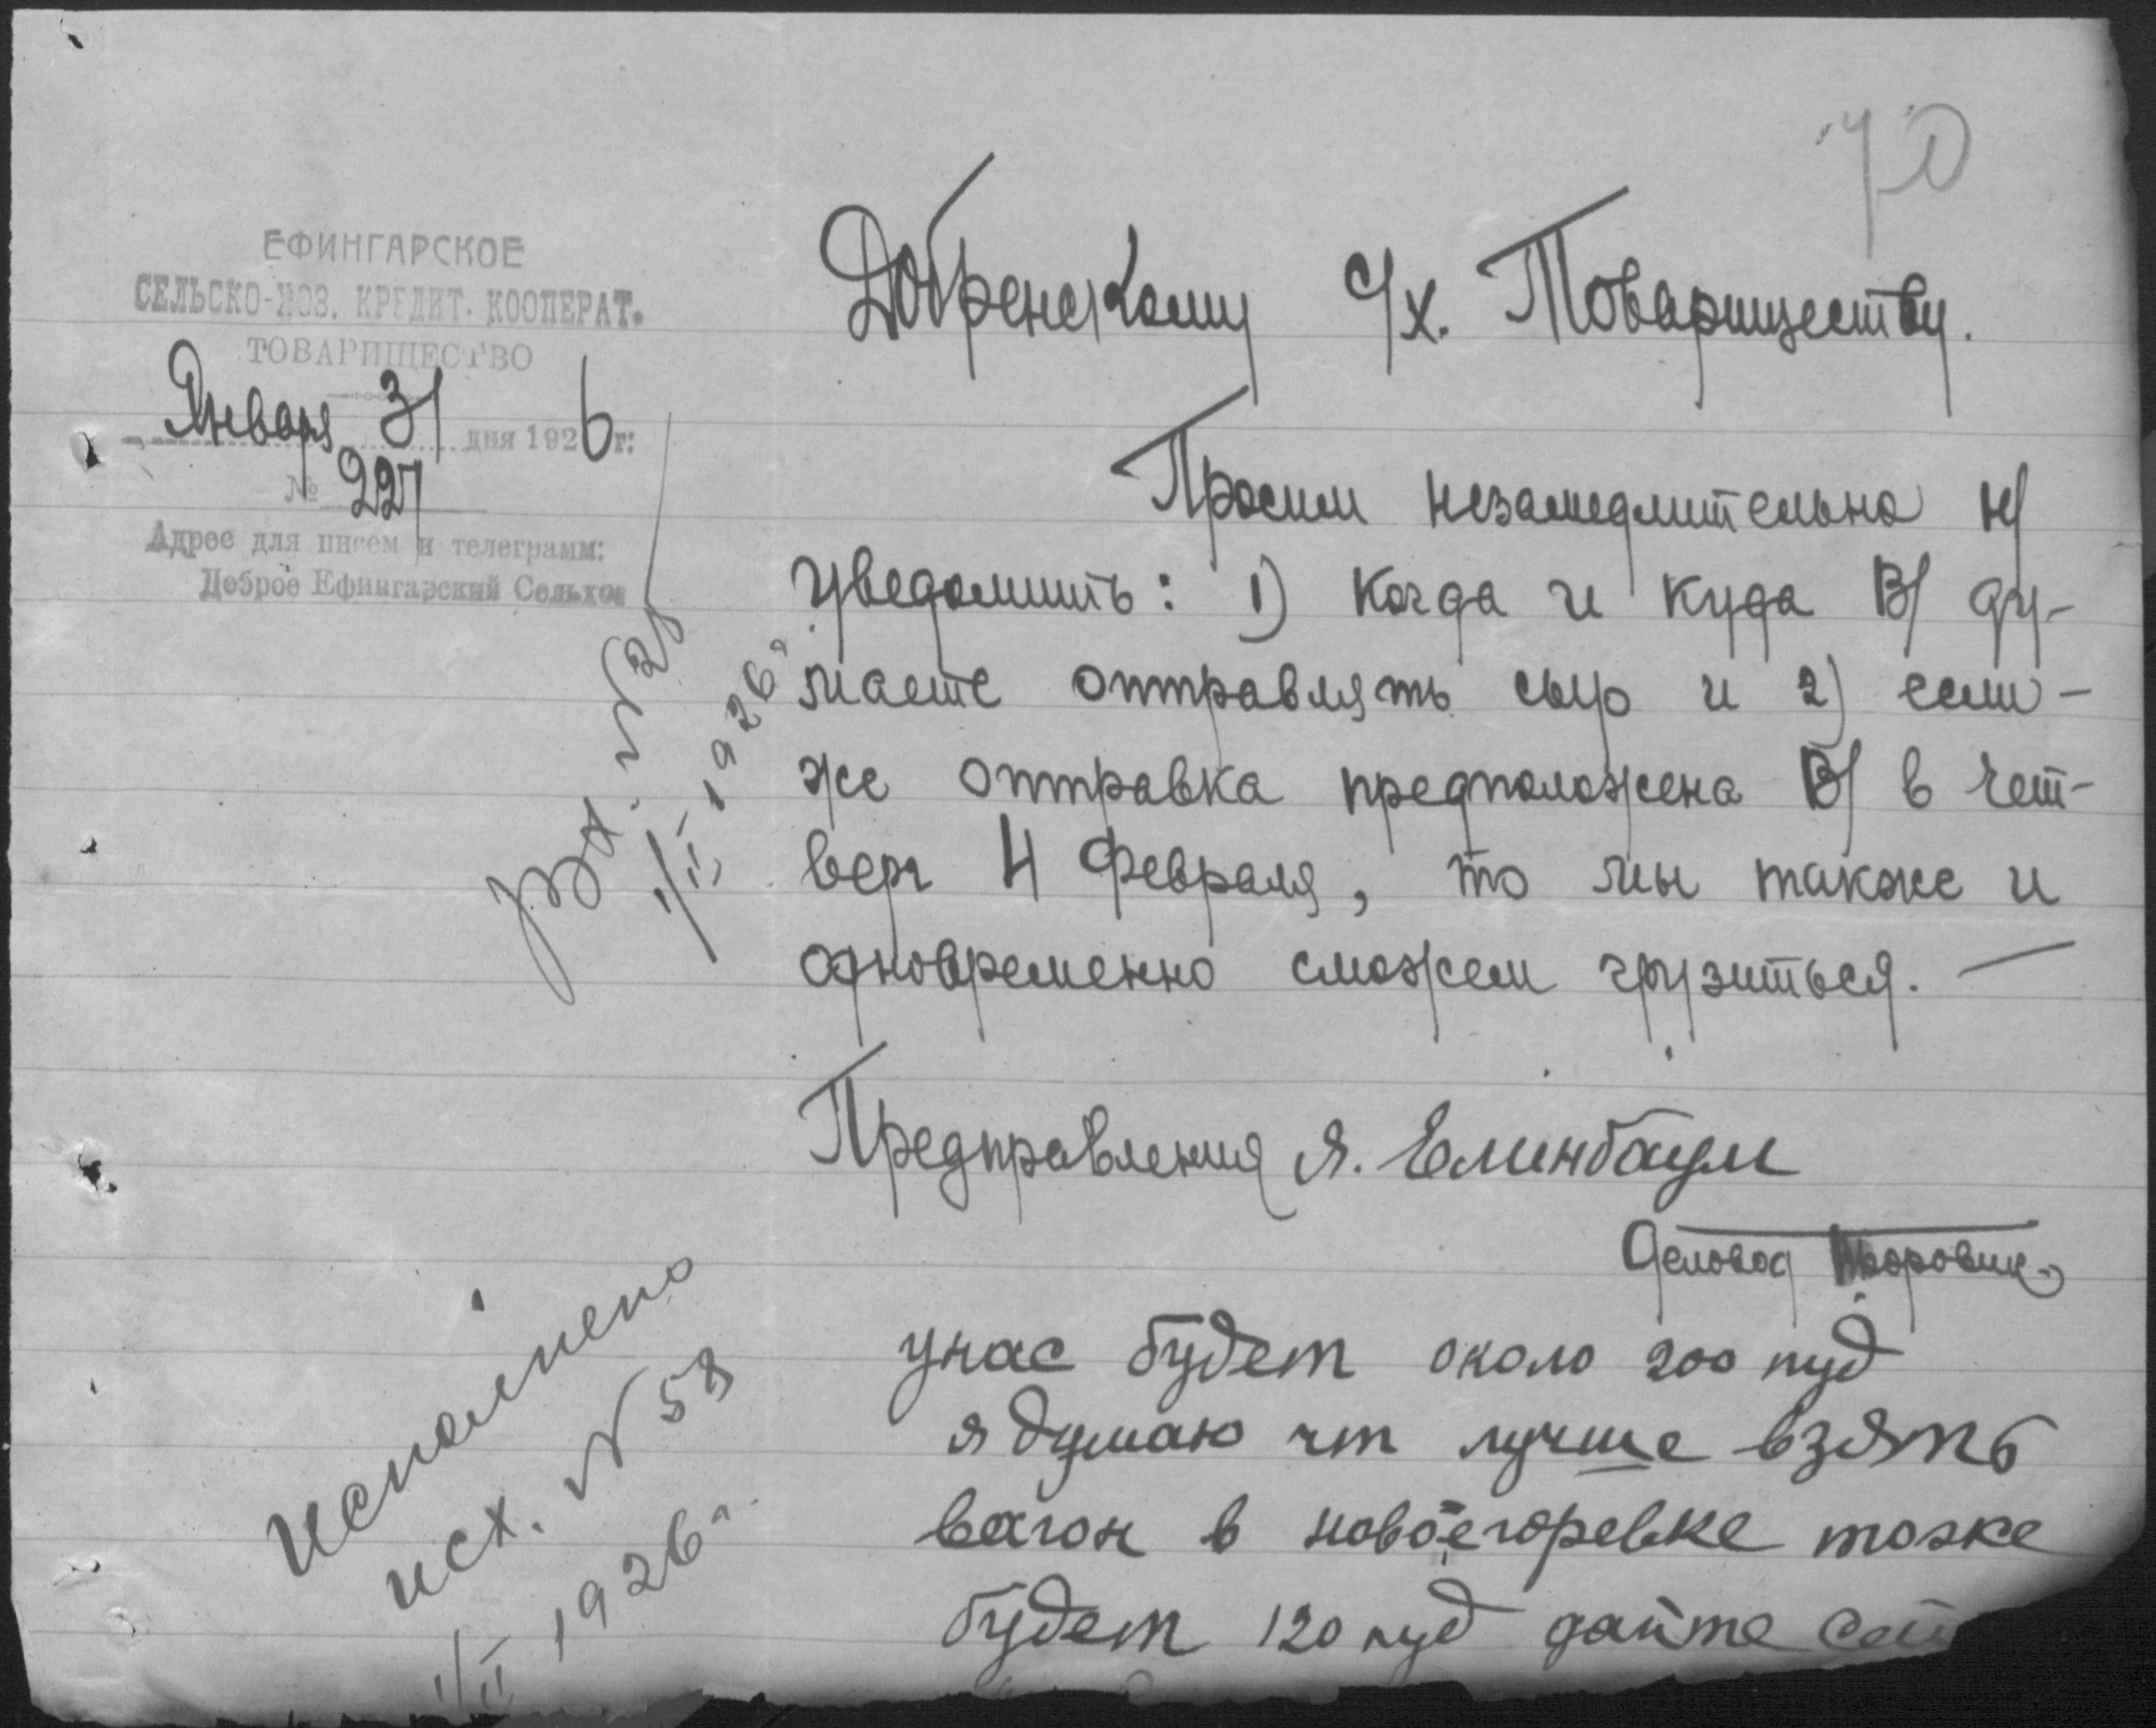 70
ЕФИНГАРСКОЕ
СЕЛЬСКО-ХОЗ. КРЕДИТ. КООПЕРАТ.
ТОВАРИЩЕСТВО
Января 31 дня 1926 г:
№ 227
Адрес для писем и телеграмм:
Доброе Ефингарский Сельхоз
Добренскому с/х. Товариществу.
Просим незамедлительно н/
уведомить: 1) когда и куда В/ ду-
маете отправлять сыр и 2) если-
же отправка предположена В/ в чет-
верг 4 февраля, то мы также и
одновременно сможем грузиться. —
Предправления Я. Елинбаум
Деловод
Вх. №
1/II 1926г
унас будет около 200 пуд
я думаю чт лучше взять
вагон в новоегоревке тоже
будет 120 пуд дайте
Исполнено
исх. № 58
1/II 1926г.